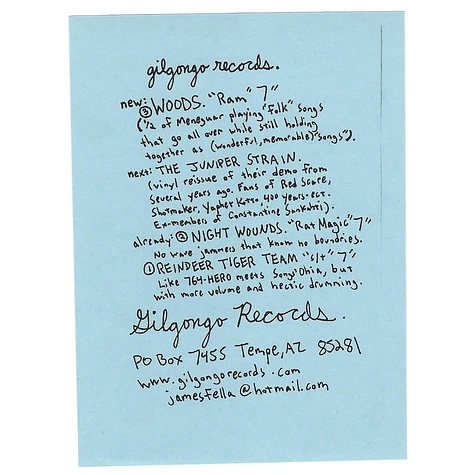 gilgongo records.
new: ③ WOODS. "Ram" 7"
(1/2 of Meneguar playing "folk" songs
that go all over while still holding
together as (wonderful, memorable) "songs").
next: THE JUNIPER STRAIN.
(vinyl reissue of their demo from
several years ago. Fans of Red Scare,
Shotmaker, Yaphet Kotto, 400 years.ect.
Ex-members of Constantine Sankathi).
already: ② NIGHT WOUNDS. "Rat Magic" 7"
No wave jammers that know no boundries.
① REINDEER TIGER TEAM "s/t" 7"
Like 764-HERO meets Songs:Ohia, but
with more volume and hectic drumming.
Gilgongo Records.
PO Box 7455 Tempe, AZ 85281
www.gilgongorecords.com
jamesfella@hotmail.com